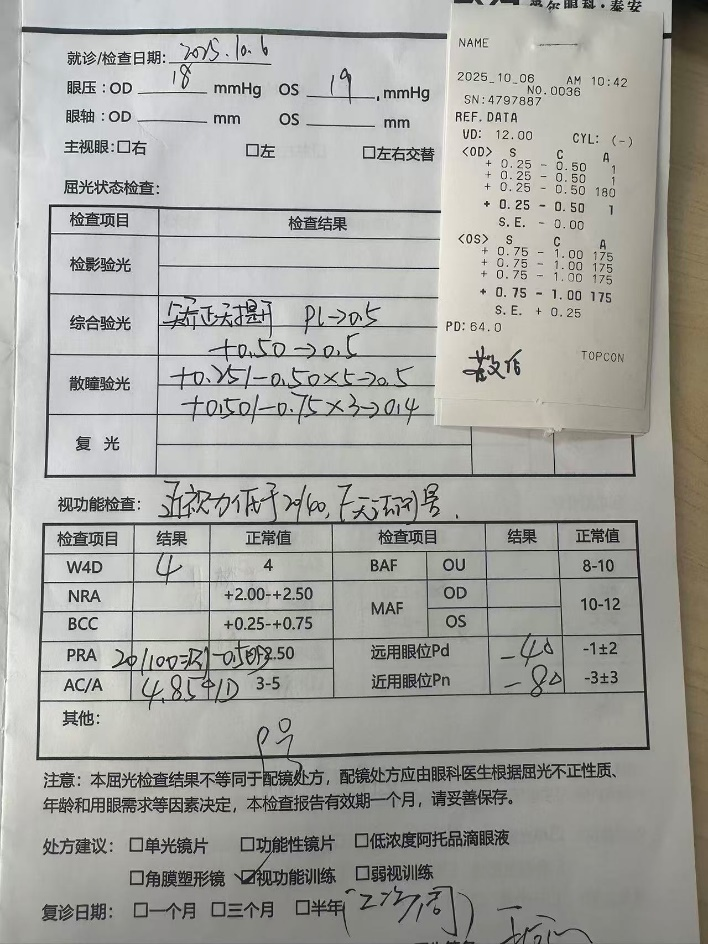 眼科·泰安
就诊/检查日期: 2025.10.6
眼压: OD 18 mmHg OS 19 mmHg
眼轴: OD mm OS mm
主视眼: □右 □左 □左右交替
屈光状态检查:
检查项目 检查结果
检影验光
综合验光 矫正无提升 PL→0.5
+0.50→0.5
散瞳验光 +0.25/-0.50×5→0.5
+0.50/-0.75×3→0.4
复光
NAME
2025_10_06 AM 10:42
NO.0036
SN:4797887
REF.DATA
VD: 12.00 CYL: (-)
<OD> S C A
+ 0.25 - 0.50 1
+ 0.25 - 0.50 1
+ 0.25 - 0.50 180
+ 0.25 - 0.50 1
S.E. - 0.00
<OS> S C A
+ 0.75 - 1.00 175
+ 0.75 - 1.00 175
+ 0.75 - 1.00 175
+ 0.75 - 1.00 175
S.E. + 0.25
PD: 64.0
TOPCON
视功能检查: 近视力低于20/40,
检查项目 结果 正常值 检查项目 结果 正常值
W4D 4 4 BAF OU 8-10
NRA +2.00-+2.50 MAF OD 10-12
BCC +0.25-+0.75 OS
PRA 20/100 -0.50 2.50 远用眼位Pd -4△ -1±2
AC/A 4.85△/D 3-5 近用眼位Pn -8△ -3±3
其他:
注意: 本屈光检查结果不等同于配镜处方，配镜处方应由眼科医生根据屈光不正性质、
年龄和用眼需求等因素决定，本检查报告有效期一个月，请妥善保存。
处方建议: □单光镜片 □功能性镜片 □低浓度阿托品滴眼液
□角膜塑形镜 ☑视功能训练 □弱视训练
复诊日期: □一个月 □三个月 □半年